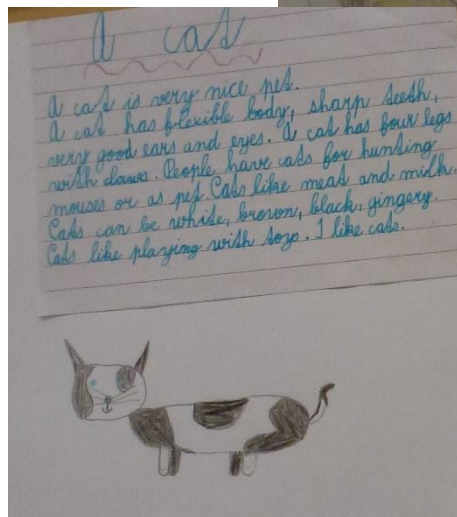 A cat
A cat is very nice pet.
A cat has flexible body, sharp teeth,
very good ears and eyes. A cat has four legs
with claws. People have cats for hunting
mouses or as pet. Cats like meat and milk.
Cats can be white, brown, black, gingery.
Cats like playing with toys. I like cats.